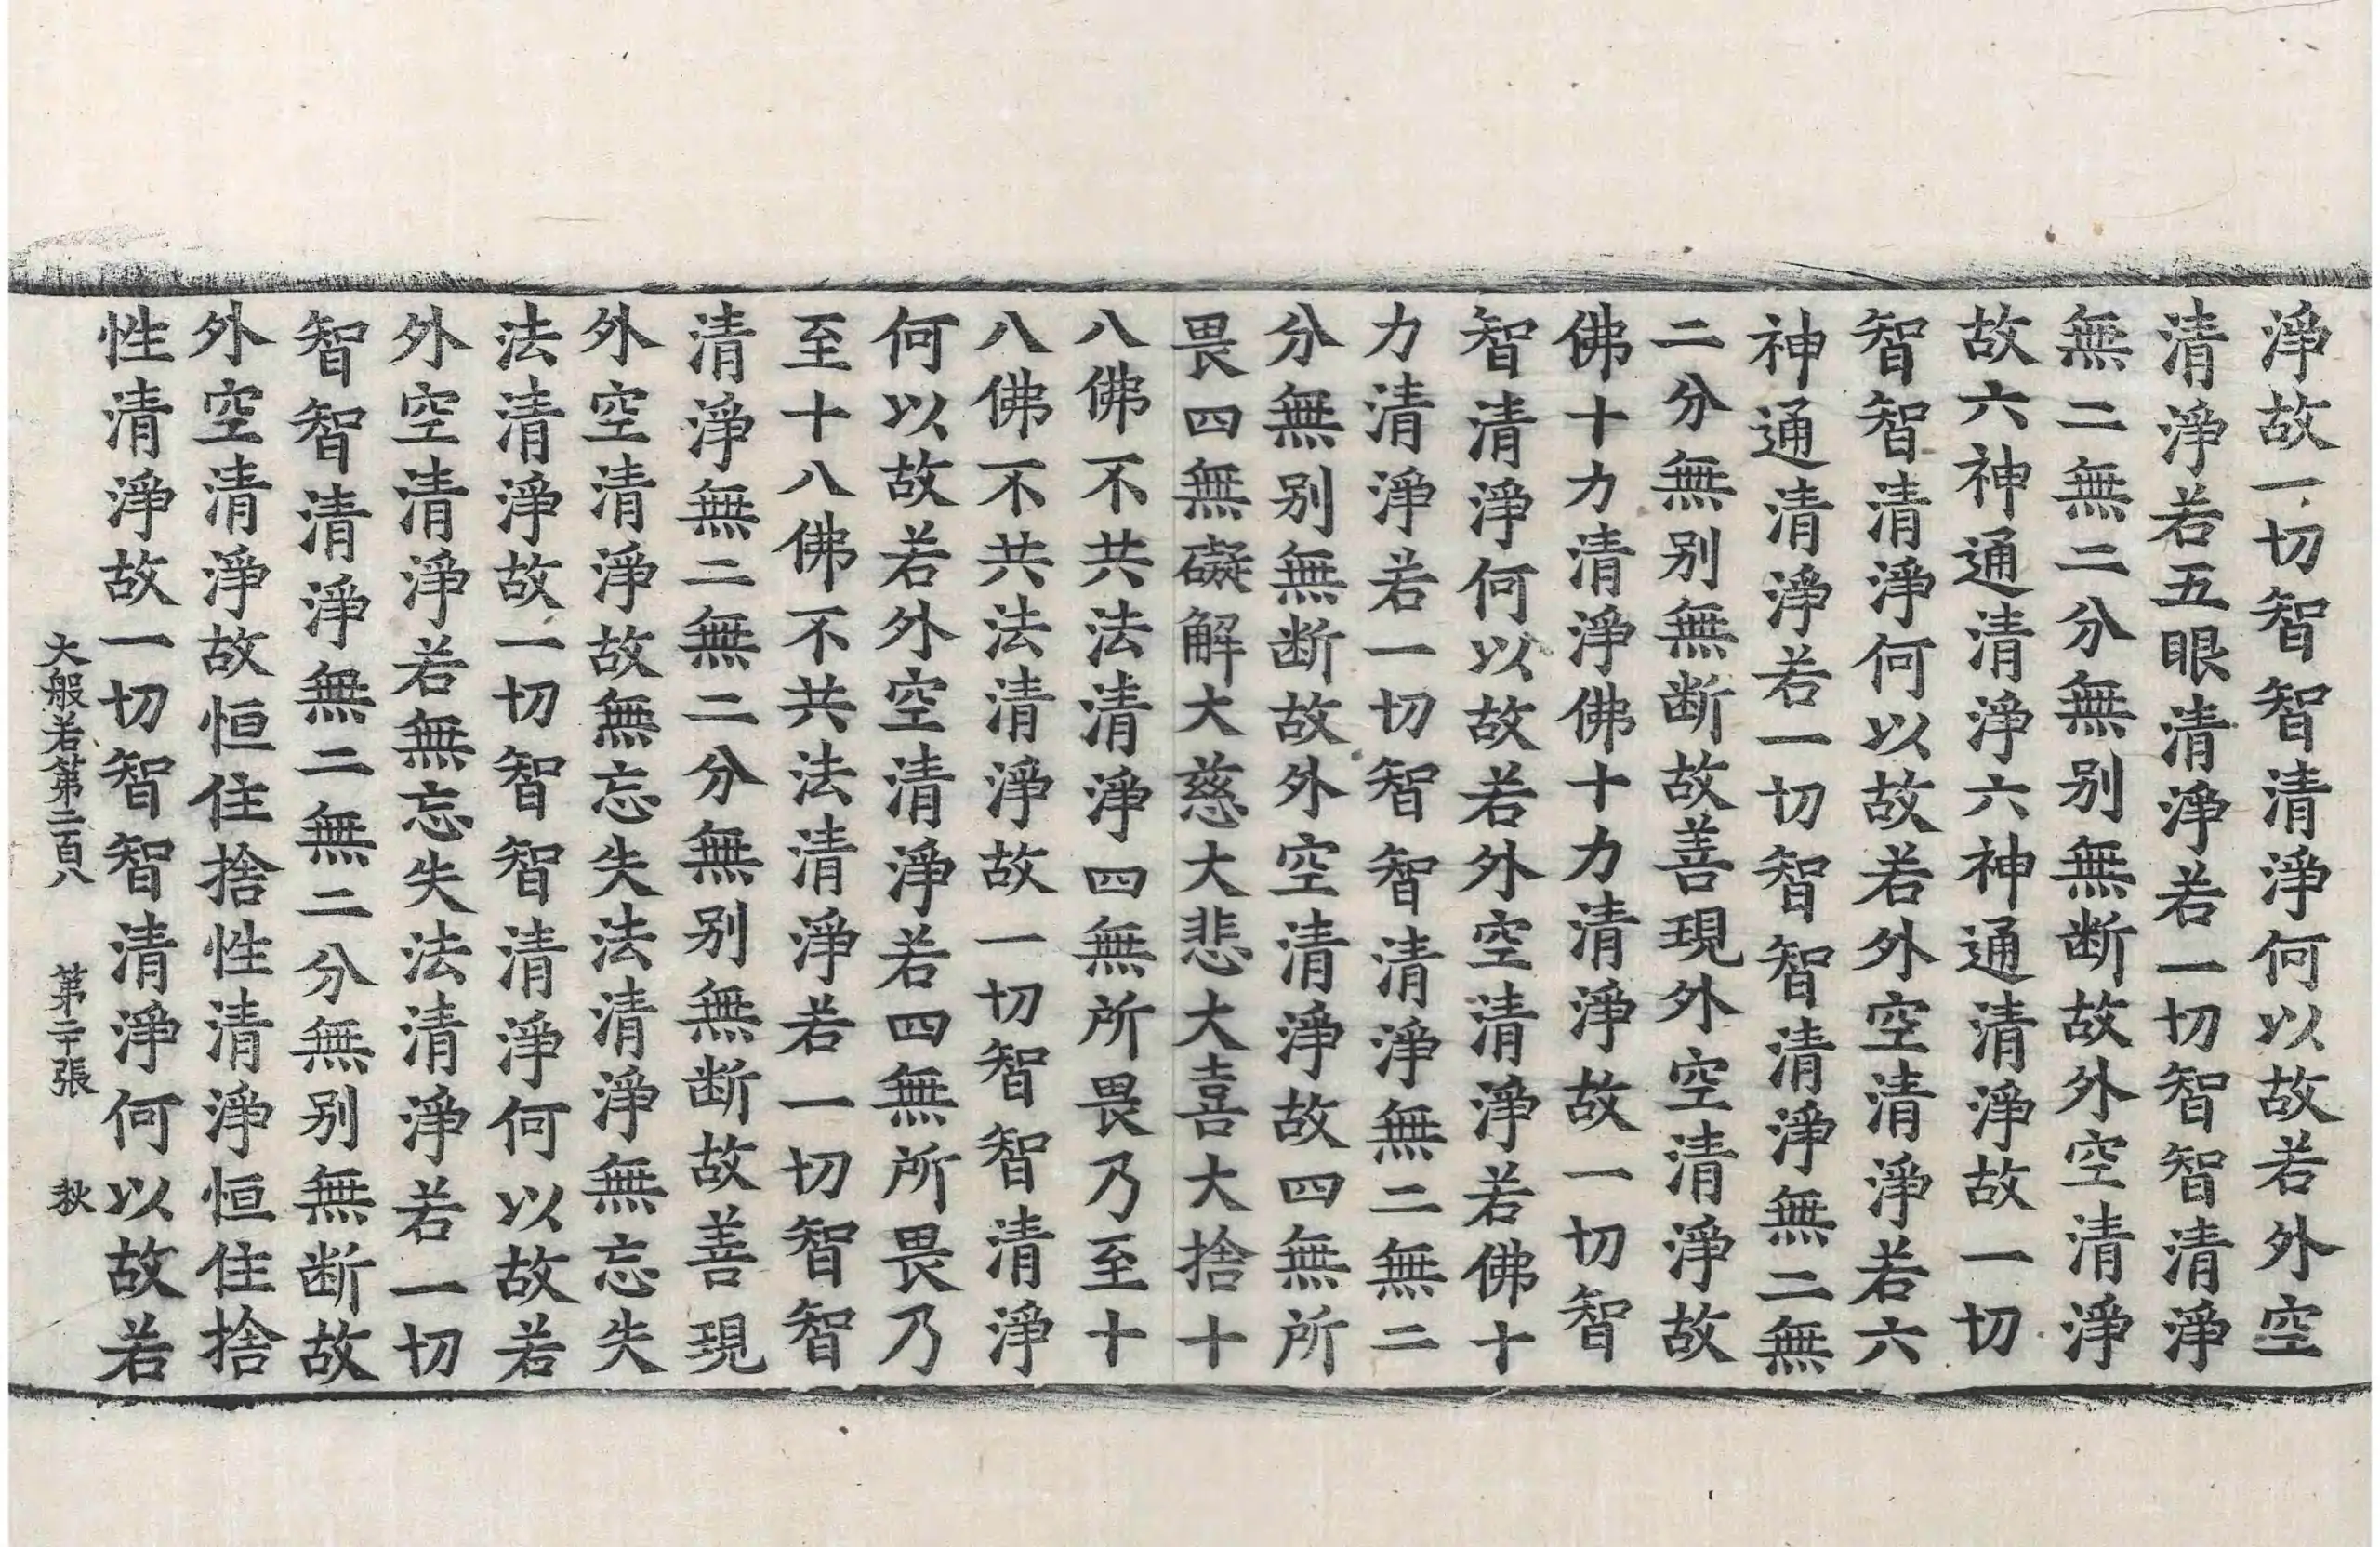 淨故一切智智清淨何以故若外空
清淨若五眼清淨若一切智智清淨
無二無二分無别無断故外空清淨
故六神通清淨六神通清淨故一切
智智清淨何以故若外空清淨若六
神通清淨若一切智智清淨無二無
二分無别無断故善現外空清淨故
佛十力清淨佛十力清淨故一切智
智清淨何以故若外空清淨若佛十
力清淨若一切智智清淨無二無二
分無别無断故外空清淨故四無所
畏四無礙解大慈大悲大喜大捨十
八佛不共法清淨四無所畏乃至十
八佛不共法清淨故一切智智清淨
何以故若外空清淨若四無所畏乃
至十八佛不共法清淨若一切智智
清淨無二無二分無别無断故善現
外空清淨故無忘失法清淨無忘失
法清淨故一切智智清淨何以故若
外空清淨若無忘失法清淨若一切
智智清淨無二無二分無别無断故
外空清淨故恒住捨性清淨恒住捨
性清淨故一切智智清淨何以故若
大般若第二百八 第二十張 秋